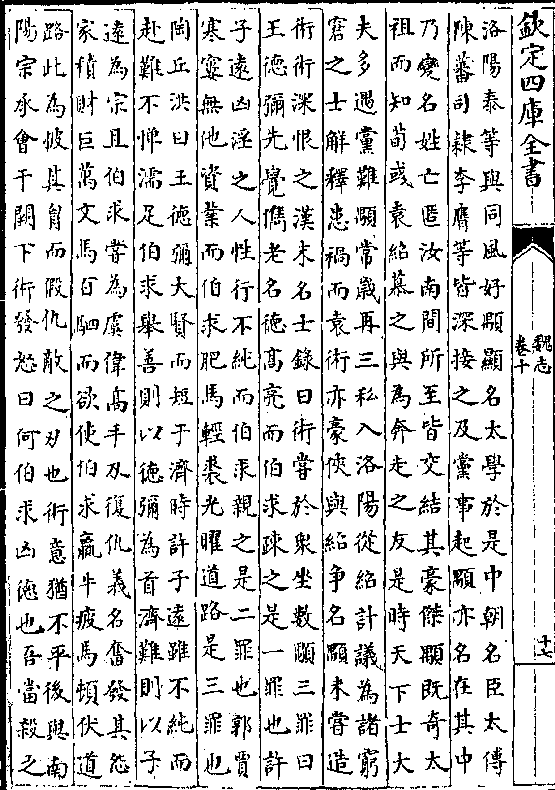 欽定四庫全書
魏志
卷十
十七
洛陽泰等與同風好顒顯名太學於是中朝名臣太傅
陳蕃司隸李膺等皆深接之及黨事起顒亦名在其中
乃變名姓亡匿汝南間所至皆交結其豪傑顒既奇太
祖而知荀彧袁紹慕之與為奔走之友是時天下士大
夫多遇黨難顒常歲再三私入洛陽從紹計議為諸窮
窘之士解釋患禍而袁術亦豪俠與紹爭名顒未嘗造
術術深恨之漢末名士錄曰術嘗於衆坐數顒三罪曰
王德彌先覺儁老名德高亮而伯求疎之是一罪也許
子遠凶淫之人性行不純而伯求親之是二罪也郭賈
寒窶無他資業而伯求肥馬輕裘光曜道路是三罪也
陶丘洪曰王德彌大賢而短于濟時許子遠雖不純而
赴難不憚濡足伯求舉善則以德彌為首濟難則以子
遠為宗且伯求嘗為虞偉高手刃復仇義名奮發其怨
家積財巨萬文馬百駟而欲使伯求羸牛疲馬頓伏道
路此為披其胷而假仇敵之刃也術意猶不平後與南
陽宗承會于闕下術發怒曰何伯求凶德也吾當殺之